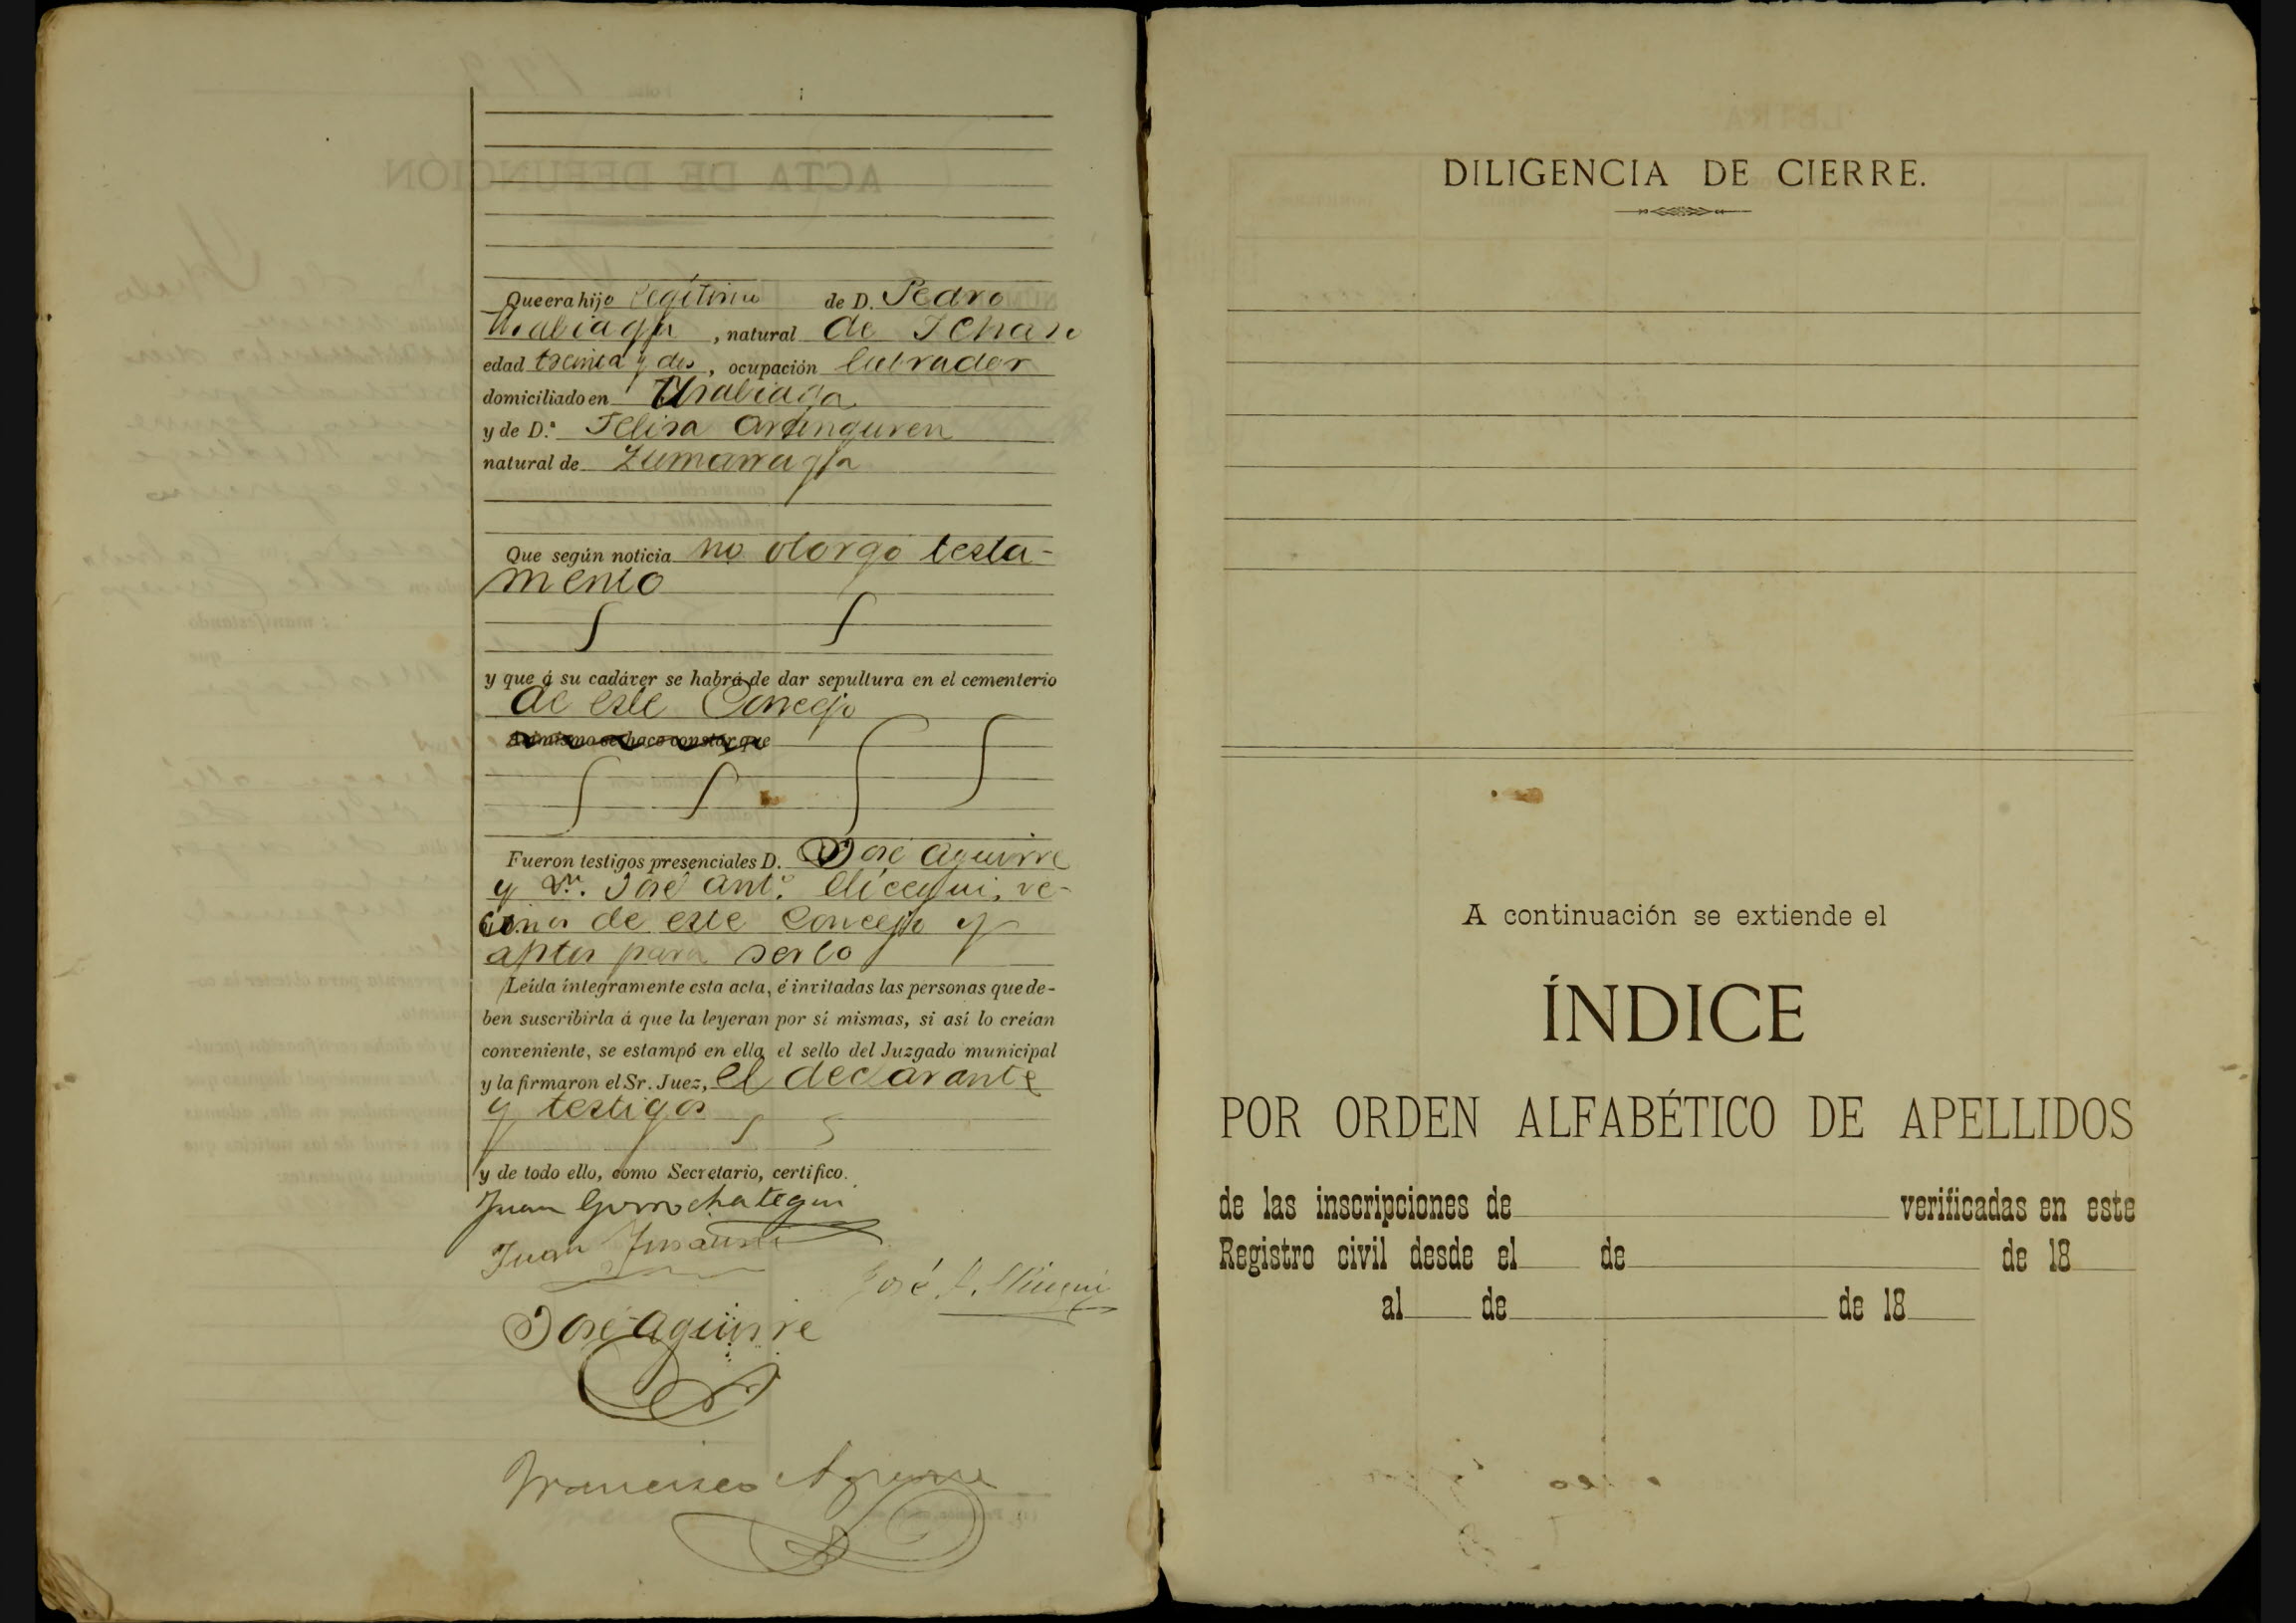 Que era hijo legítimo de D. Pedro
Urabiaga, natural de Ichaso
edad treinta y dos, ocupación labrador
domiciliado en Urabiaga
y de D.ª Felisa Aranguren
natural de Zumarraga
Que según noticia no otorgó testa-
mento
y que á su cadáver se habrá de dar sepultura en el cementerio
de este Concejo
Asimismo se hace constar que
Fueron testigos presenciales D. José Aguirre
y Dn. José Ant.º Elícegui, ve-
cinos de este Concejo y
aptos para serlo
Leída íntegramente esta acta, é invitadas las personas que de-
ben suscribirla á que la leyeran por sí mismas, si así lo creían
conveniente, se estampó en ella el sello del Juzgado municipal
y la firmaron el Sr. Juez, el declarante
y testigos
y de todo ello, como Secretario, certifico.
Juan Gorrochategui
Juan
José A. Elícegui
José Aguirre
Francisco Aguirre
DILIGENCIA DE CIERRE.
A continuación se extiende el
ÍNDICE
POR ORDEN ALFABÉTICO DE APELLIDOS
de las inscripciones de verificadas en este
Registro civil desde el de de 18
al de de 18